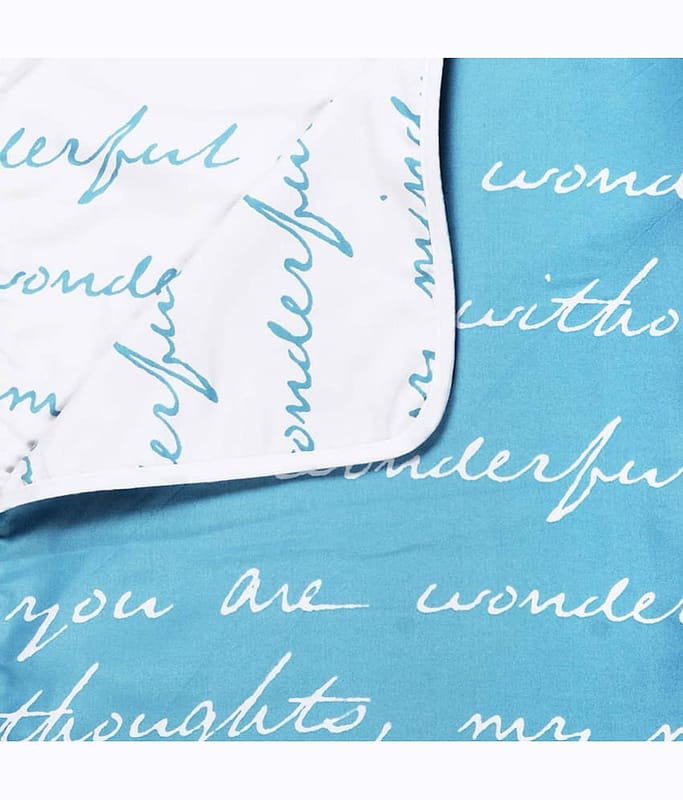 derful
wonde
my
erful
onderful
mind
my
wond
witho
wonderfu
you are wonder
thoughts, my m